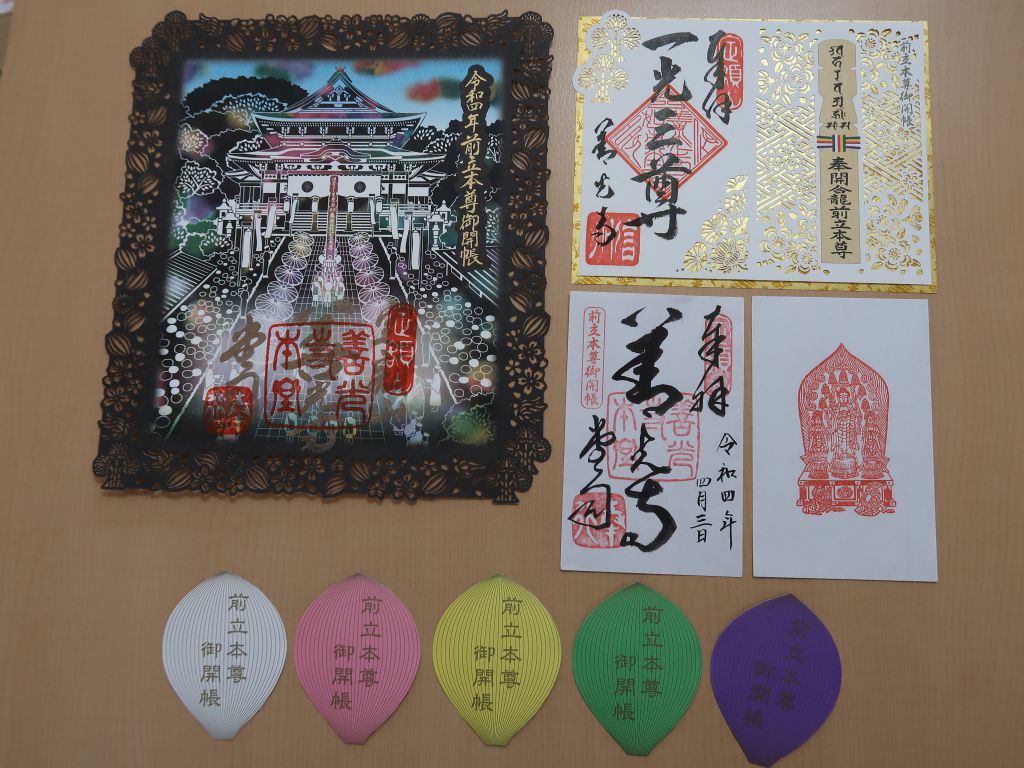 令和四年前立本尊御開帳
善光
寺
本堂
奉拝
一光三尊
善光寺
前立本尊御開帳
奉開龕前立本尊
奉拝
令和四年
四月三日
善光寺
前立本尊御開帳
善光
寺
本堂
前立本尊
御開帳
前立本尊
御開帳
前立本尊
御開帳
前立本尊
御開帳
前立本尊
御開帳